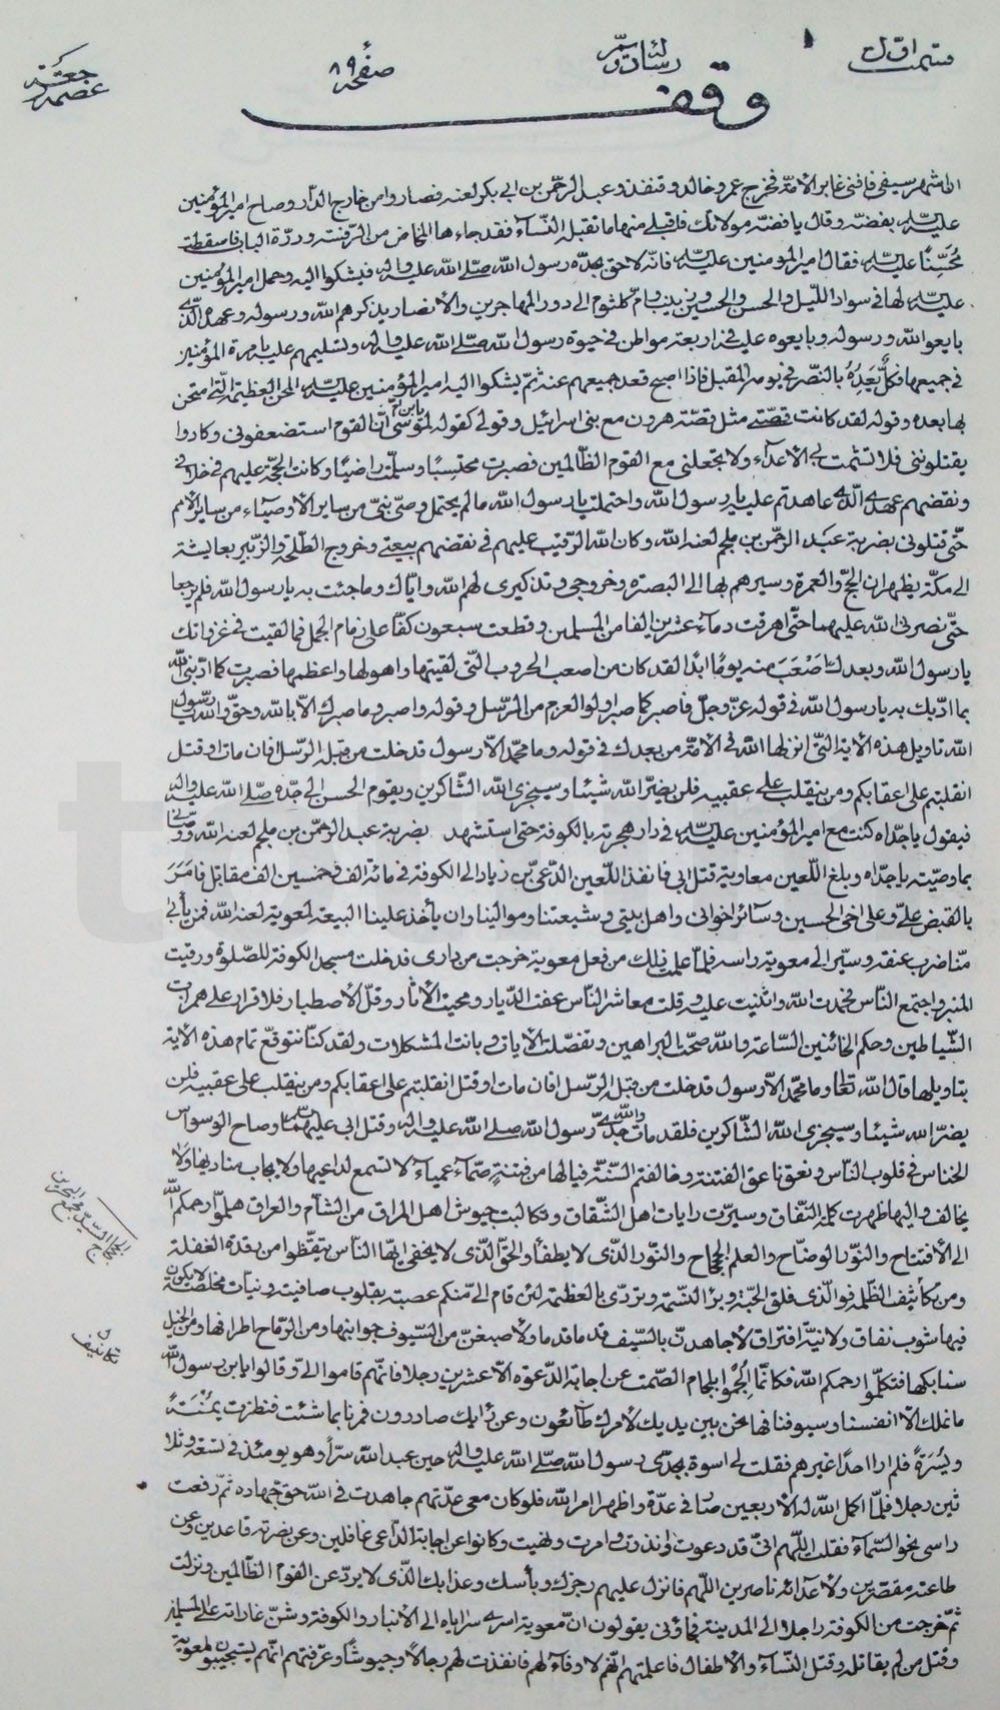 قسمت اول
صفحه ٨٩
وقف
اشهر سيفى فافنى غابر الامة فخرج عمر و خالد و قنفذ و عبد الرحمن بن ابى بكر لعنه فصاروا من خارج الدار و صاح امير المؤمنين
عليه السلم بفضة و قال يا فضة مولاتك فاقبلى منها ما تقبله النساء فقد جاءها المخاض من الرفسة و ردة الباب فاسقطت
مُحَسِّنًا عليه السلم فقال امير المؤمنين عليه السلم فانه لاحق بجده رسول الله صلى الله عليه و اله فيشكوا اليه و حمل امير المؤمنين
عليه السلم لها فى سواد الليل و الحسن و الحسين و زينب و ام كلثوم الى دور المهاجرين و الانصار يذكرهم الله و رسوله و عهده الذى
بايعوا الله و رسوله و بايعوه عليه فى اربعة مواطن فى حيوة رسول الله صلى الله عليه و اله و تسليمهم عليه بامرة المؤمنين
فى جميعها فكلٌّ يَعِدُهُ بالنصر فى يومه المقبل فاذا اصبح قعد جميعهم عنه ثم يشكوا اليه امير المؤمنين عليه السلم المحن العظيمة التى امتحن
بها بعده و قوله لقد كانت قصتى مثل قصة هرون مع بنى اسرائيل و قولى كقوله لموسى يا بن ام ان القوم استضعفونى و كادوا
يقتلوننى فلا تشمت بى الاعداء و لا تجعلنى مع القوم الظالمين فصبرت محتسبًا و سلمت راضيًا و كانت الحجة عليهم فى خلافى
و نقضهم عهدى الذى عاهدتهم عليه يا رسول الله و احتملت يا رسول الله ما لم يحتمل وصى نبى من ساير الاوصياء من ساير الامم
حتى قتلونى بضربة عبد الرحمن بن ملجم لعنه الله و كان الله الرقيب عليهم فى نقضهم بيعتى و خروج الطلحة و الزبير بعايشة
الى مكة يظهران الحج و العمرة و سيرهم بها الى البصرة و خروجى و تذكيرى لهم الله و اياك و ما جئت به يا رسول الله فلم يرجعا
حتى نصرنى الله عليهما حتى اهرقت دماء عشرين الفا من المسلمين و قطعت سبعون كفا على زمام الجمل فما لقيت فى غزواتك
يا رسول الله و بعدك اَصْعَبَ منه يومًا ابدًا لقد كان من اصعب الحروب التى لقيتها و اهولها و اعظمها فصبرت كما ادبنى الله
بما ادبك به يا رسول الله فى قوله عز و جل فاصبر كما صبر اولوا العزم من الرسل و قوله و اصبر و ما صبرك الا بالله و حق و الله يا رسول
الله تاويل هذه الاية التى انزلها الله فى الامة من بعدك فى قوله و ما محمد الا رسول قد خلت من قبله الرسل افان مات او قتل
انقلبتم على اعقابكم و من ينقلب على عقبيه فلن يضر الله شيئا و سيجزى الله الشاكرين و يقوم الحسن الى جده صلى الله عليه و اله
فيقول يا جداه كنت مع امير المؤمنين عليه السلم فى دار هجرته بالكوفة حتى استشهد بضربة عبد الرحمن بن ملجم لعنه الله فوصانى
بما وصيته يا جداه و بلغ اللعين معاوية قتل ابى فانفذ اللعين الدعى بن زياد الى الكوفة فى مائة الف و خمسين الف مقاتل فاَمَرَ
بالقبض علىّ و على اخى الحسين و سائر اخوانى و اهل بيتى و شيعتنا و موالينا و ان ياخذ علينا البيعة لمعوية لعنه الله فمن يأبى
منا ضرب عنقه و سير الى معوية راسه فلما علمت ذلك من فعل معوية خرجت من دارى فدخلت مسجد الكوفة للصلوة و رقيت
المنبر و اجتمع الناس فحمدت الله و اثنيت عليه و قلت معاشر الناس عفت الديار و محيت الاثار و قل الاصطبار فلا قرار على همزات
الشياطين و حكم الخائنين الساعة و الله صحت البراهين و تفصلت الايات و بانت المشكلات و لقد كنا نتوقع تمام هذه الاية
بتاويلها قال الله تعالى و ما محمد الا رسول قد خلت من قبله الرسل افان مات او قتل انقلبتم على اعقابكم و من ينقلب على عقبيه فلن
يضر الله شيئا و سيجزى الله الشاكرين فلقد مات و الله جدى رسول الله صلى الله عليه و اله و قتل ابى عليهما السلم و صاح الوسواس
الخناس فى قلوب الناس و نعق ناعق الفتنة و خالفتم السنة فيا لها من فتنةٍ صماء عمياء لا تسمع لداعيها و لا يجاب مناديها و لا
يخالف واليها ظهرت كلمة النفاق و سيرت رايات اهل الشقاق و تكالبت جيوش اهل المراق من الشام و العراق هلموا رحمكم الله
الى الافتتاح و النور الوضاح و العلم الجحجاح و النور الذى لا يطفأ و الحق الذى لا يخفى ايها الناس تيقظوا من رقدة الغفلة
و من تكاثيف الظلمة فو الذى فلق الحبة و برأ النسمة و تردى بالعظمة لئن قام الى منكم عصبة بقلوب صافية و نيات مخلصة لا يكون
فيها شوب نفاق و لا نية افتراق لاجاهدن بالسيف قدما قدما و لاصبغن من السيوف جوانبها و من الرماح اطرافها و من الخيل
سنابكها فتكلموا رحمكم الله فكانما اُلْجِمُوا بلجام الصمت عن اجابة الدعوة الا عشرين رجلا فانهم قاموا الى و قالوا يا بن رسول الله
ما نملك الا انفسنا و سيوفنا فها نحن بين يديك لامرك طائعون و عن رايك صادرون فمرنا بما شئت فنظرت يُمْنَةً
و يُسْرَةً فلم ار احدًا غيرهم فقلت لى اسوة بجدى رسول الله صلى الله عليه و اله حين عبد الله سرا و هو يومئذ فى تسعة و ثلا
ثين رجلا فلما اكمل الله له الاربعين صار فى عدة و اظهر امر الله فلو كان معى عدتهم جاهدت فى الله حق جهاده ثم رفعت
راسى نحو السماء فقلت اللهم انى قد دعوت و انذرت و امرت و نهيت و كانوا عن اجابة الداعى غافلين و عن نصرته قاعدين و عن
طاعته مقصرين و لاعدائه ناصرين اللهم فانزل عليهم رجزك و بأسك و عذابك الذى لا يرد عن القوم الظالمين و نزلت
ثم خرجت من الكوفة راجلا الى المدينة فجاؤنى يقولون ان معوية اسرى سراياه الى الانبار و الكوفة و شن غاراته على المسلمين
و قتل من لم يقاتله و قتل النساء و الاطفال فاعلمتهم انهم لا وفاء لهم فانفذت لهم رجالا و جيوشا و عرفتهم انهم يستجيبون لمعوية